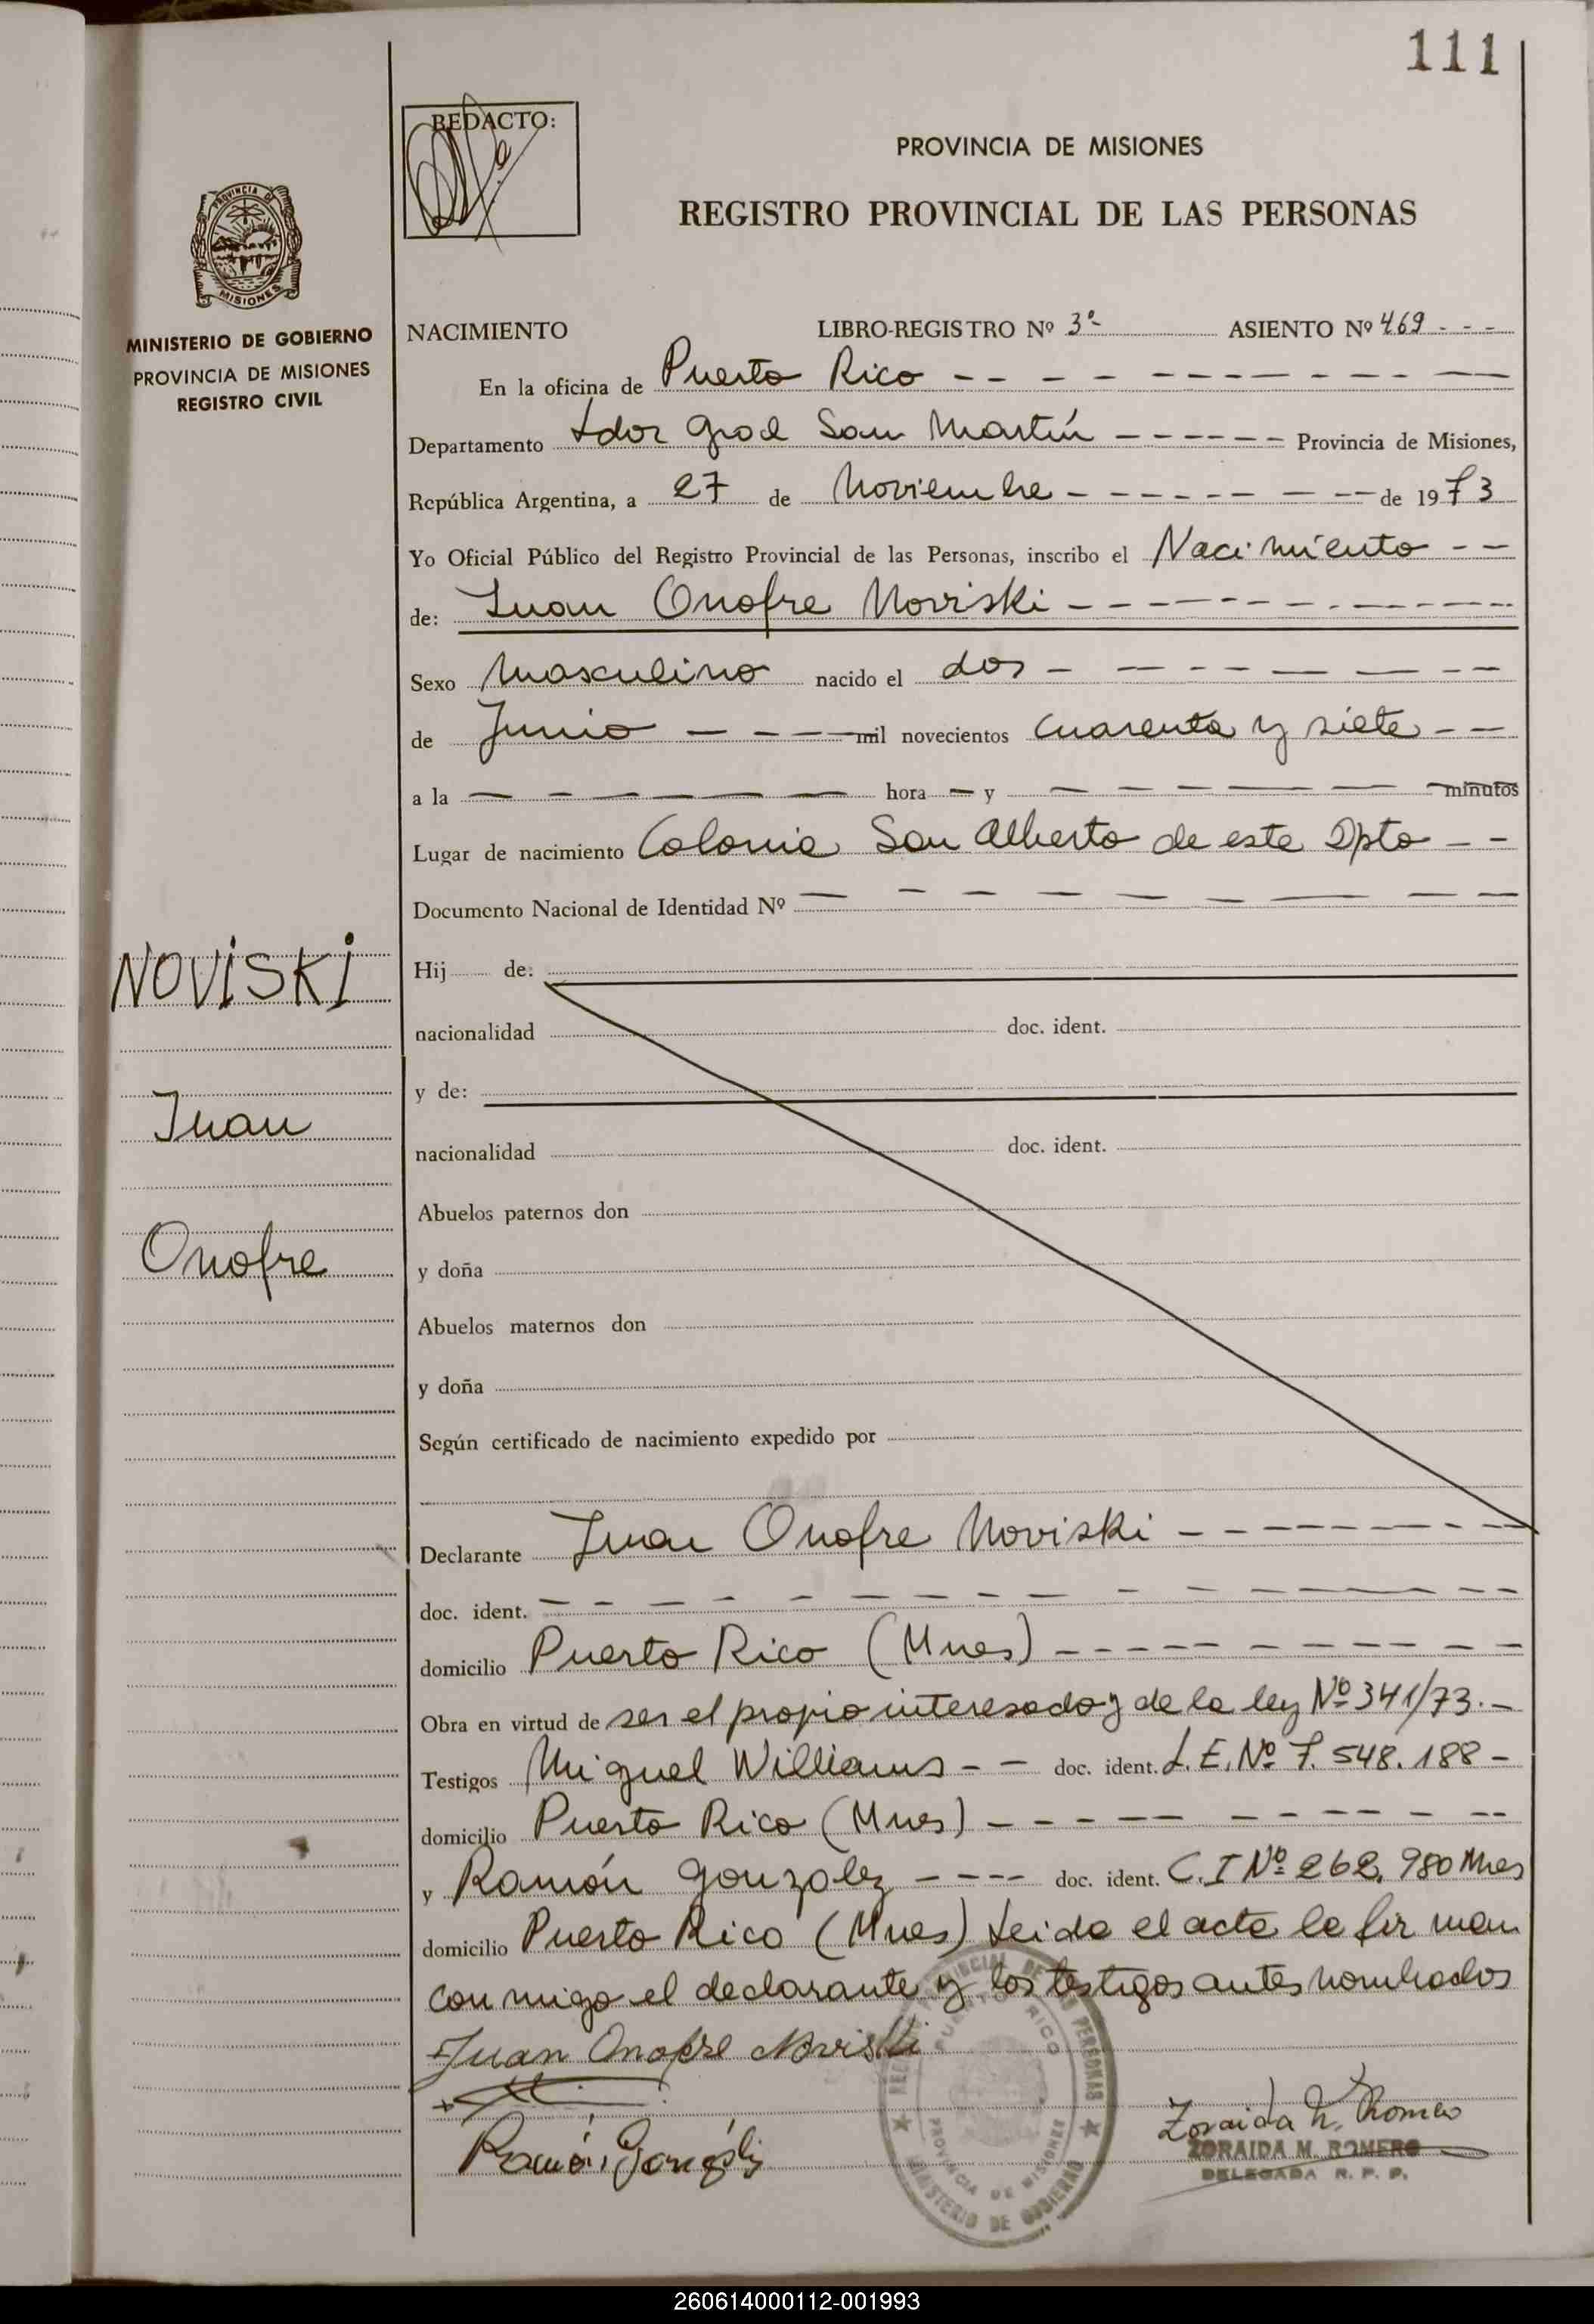 111
REDACTO:
PROVINCIA DE MISIONES
REGISTRO PROVINCIAL DE LAS PERSONAS
PROVINCIA DE
MISIONES
MINISTERIO DE GOBIERNO
PROVINCIA DE MISIONES
REGISTRO CIVIL
NACIMIENTO LIBRO-REGISTRO Nº 3º- ASIENTO Nº 469 - - -
En la oficina de Puerto Rico
Departamento Ldor Gral San Martín Provincia de Misiones,
República Argentina, a 27 de Noviembre de 1973
Yo Oficial Público del Registro Provincial de las Personas, inscribo el Nacimiento
de: Juan Onofre Noviski
Sexo Masculino nacido el dos
de Junio mil novecientos cuarenta y siete
a la hora y minutos
Lugar de nacimiento Colonia San Alberto de este Dpto
Documento Nacional de Identidad Nº
Hij de:
nacionalidad doc. ident.
y de:
nacionalidad doc. ident.
Abuelos paternos don
y doña
Abuelos maternos don
y doña
Según certificado de nacimiento expedido por
NOVISKI
Juan
Onofre
Declarante Juan Onofre Noviski
doc. ident.
domicilio Puerto Rico (Mnes)
Obra en virtud de ser el propio interesado y de la ley Nº 341/73.-
Testigos Miguel Williams doc. ident. L.E. Nº 7.548.188-
domicilio Puerto Rico (Mnes)
y Ramón Gonzalez doc. ident. C.I Nº 262.980 Mnes
domicilio Puerto Rico (Mnes) Leida el acta la firman
conmigo el declarante y los testigos antes nombrados
Juan Onofre Noviski
Ramón González
PUERTO RICO
PROVINCIA DE MISIONES
MINISTERIO DE GOBIERNO
Zoraida M. Romero
ZORAIDA M. ROMERO
DELEGADA R. P. P.
260614000112-001993